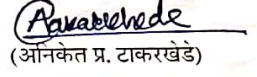 (अनिकेत प्र. टाकरखेडे)